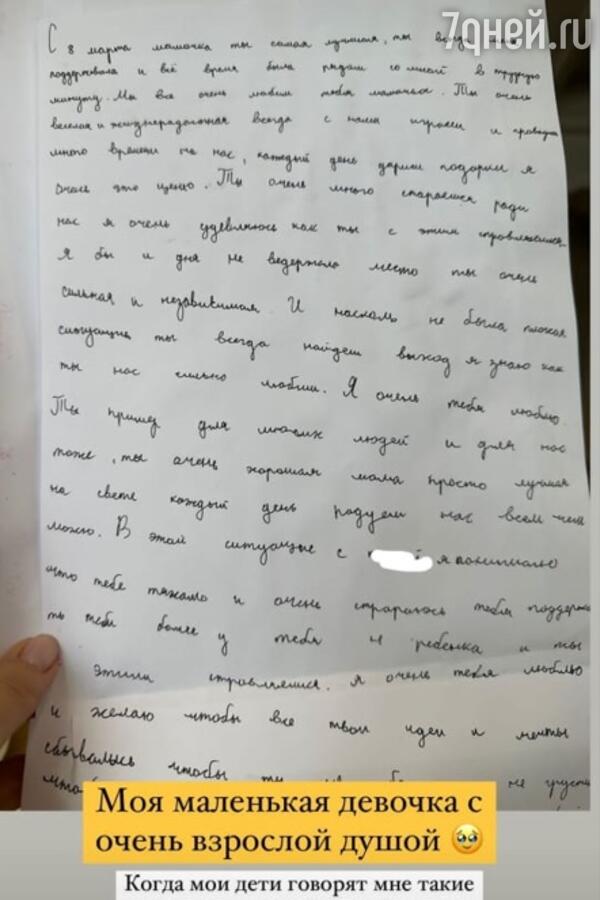 7дней.ru
С 8 марта мамочка ты самая лучшая, ты всегда меня
поддерживала и всё время была рядом со мной в трудную
минуту. Мы все очень любим тебя мамочка. Ты очень
веселая и жизнерадостная всегда с нами играеш и проводиш
много времени на нас, каждый день дариш подарки я
очень это ценю. Ты очень много стараешся ради
нас я очень удевляюсь как ты с этим справляешся.
Я бы и дня не ведержала место ты очень
сильная и независимая. И насколь не была плохая
ситуация ты всегда найдеш выход я знаю как
ты нас сильно любиш. Я очень тебя люблю.
Ты пример для многих людей и для нас
тоже, ты очень хорошая мама просто лучшая
на свете каждый день радуеш нас всем чем
можно. В этой ситуацие с я понимаю
что тебе тяжало и очень стараюсь тебя поддержа
ть тем более у тебя 4 ребенка и ты
этим справляешся. Я очень тебя люблю
и желаю чтобы все твои идеи и мечты
сбывались чтобы ты не грусти
Моя маленькая девочка с
очень взрослой душой 🥹
Когда мои дети говорят мне такие